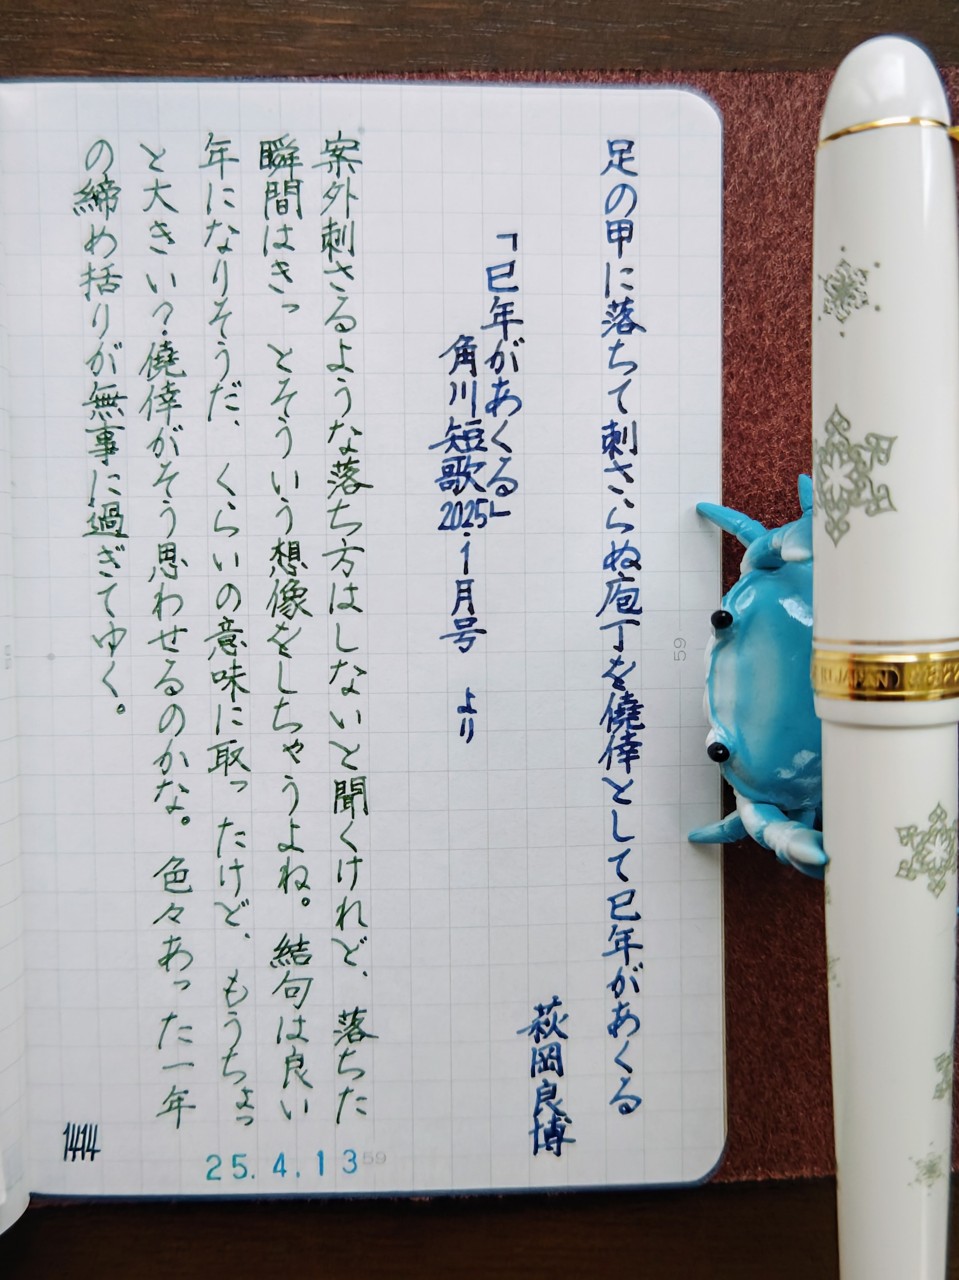 足の甲に落ちて刺さらぬ庖丁を僥倖として巳年があくる
萩岡良博
「巳年があくる」
角川短歌2025・1月号 より
案外刺さるような落ち方はしないと聞くけれど、落ちた
瞬間はきっとそういう想像をしちゃうよね。結句は良い
年になりそうだ、くらいの意味に取ったけど、もうちょっ
と大きい?僥倖がそう思わせるのかな。色々あった一年
の締め括りが無事に過ぎてゆく。
1414
25.4.13
59
59
JAPAN